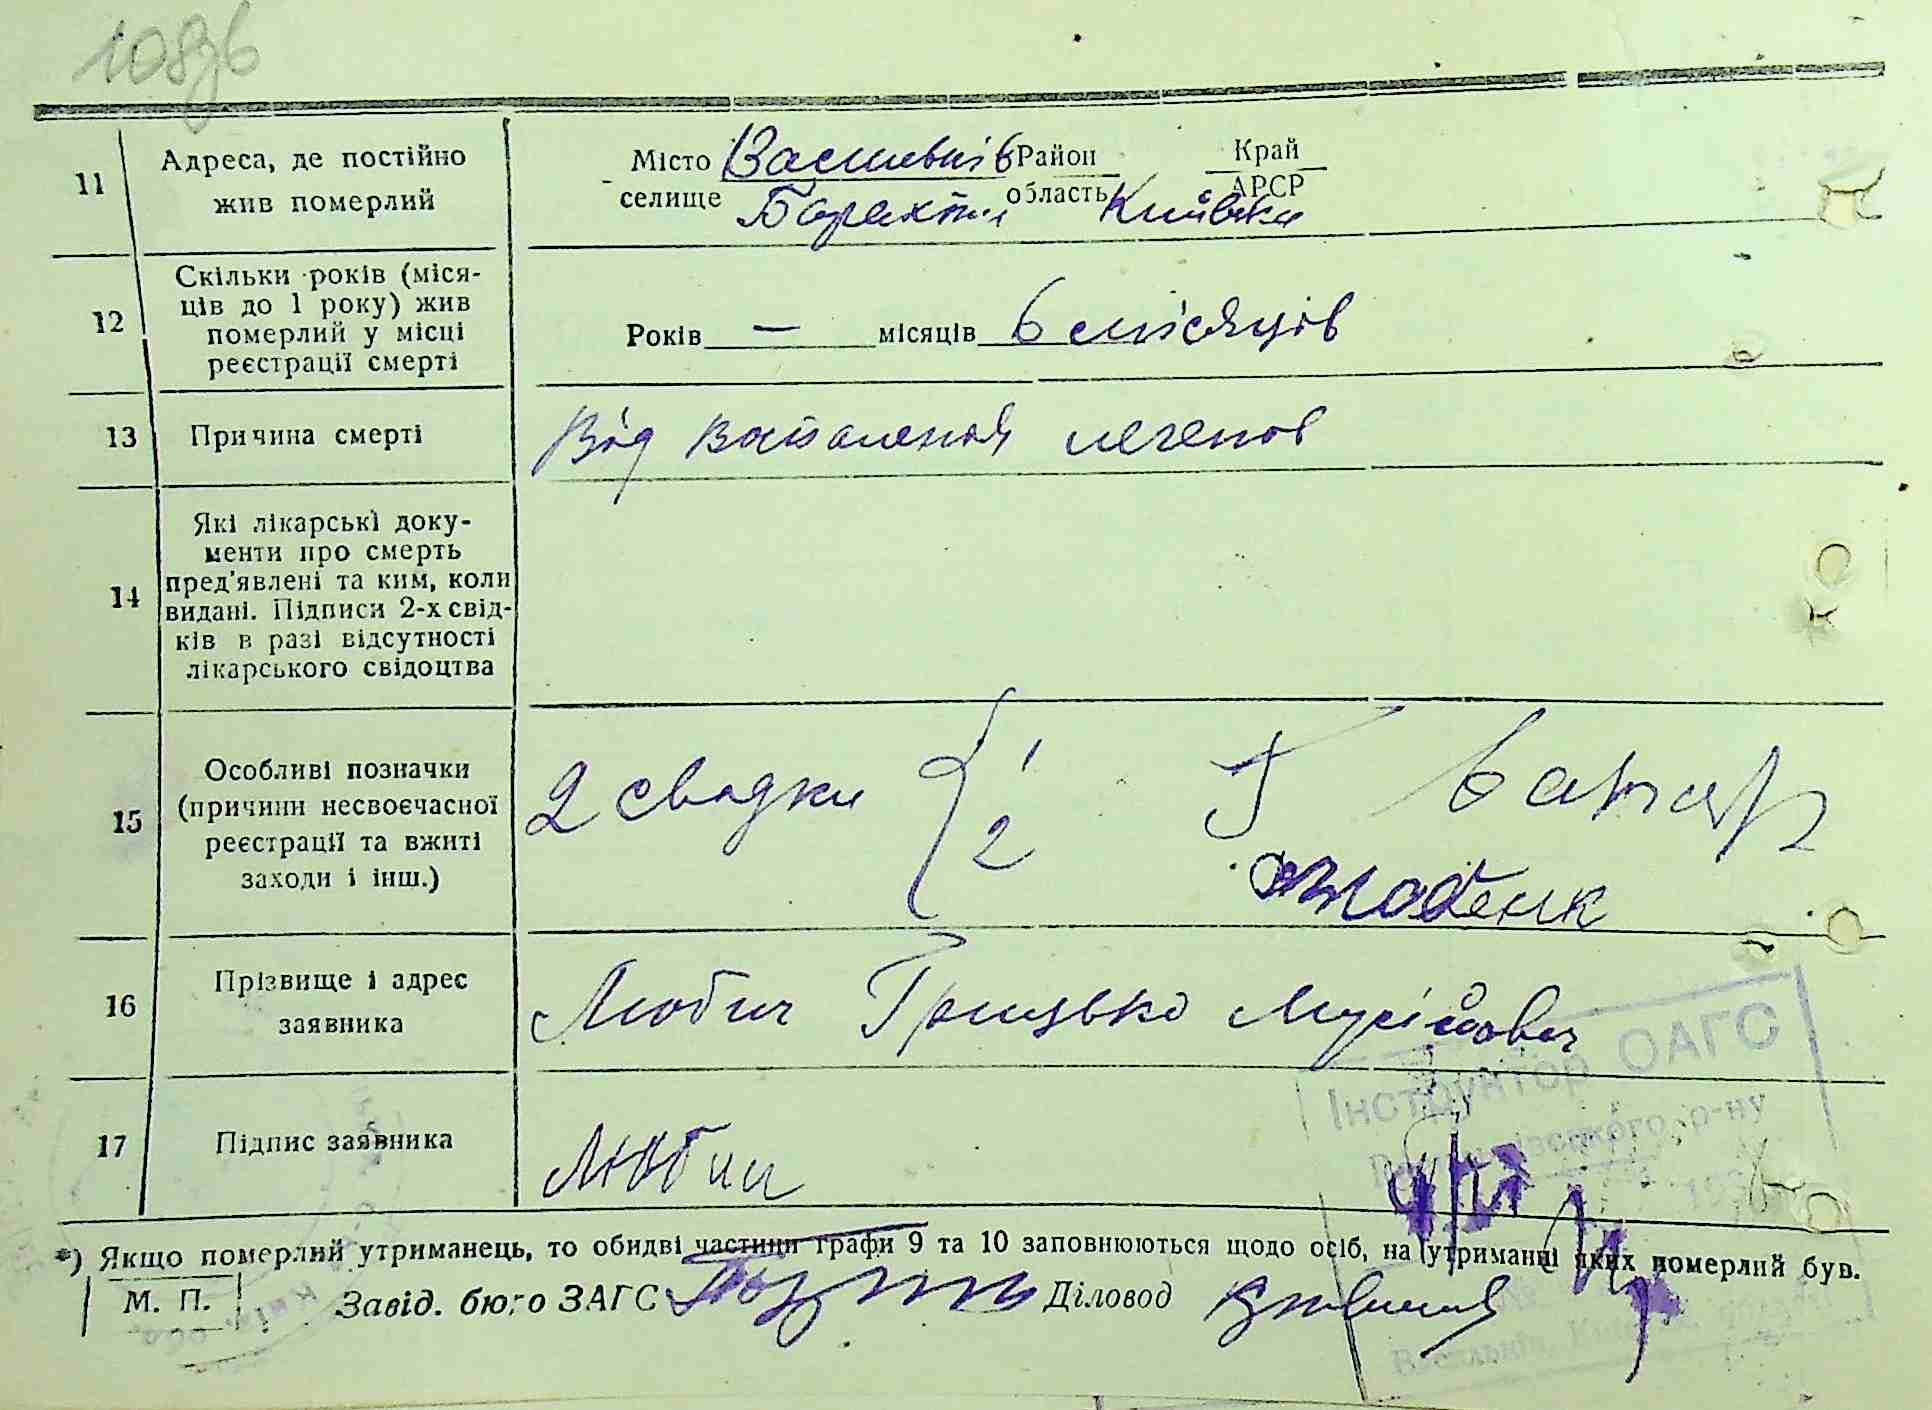 11 Адреса, де постійно
жив померлий
Місто Васильків Район Край
селище Барахти область Київська АРСР
12 Скільки років (міся-
ців до 1 року) жив
померлий у місці
реєстрації смерті
Років — місяців 6 місяців
13 Причина смерті
Від запалення легенов
14 Які лікарські доку-
менти про смерть
пред'явлені та ким, коли
видані. Підписи 2-х свід-
ків в разі відсутності
лікарського свідоцтва
15 Особливі позначки
(причини несвоєчасної
реєстрації та вжиті
заходи і інш.)
2 свідки { 1
2
16 Прізвище і адрес
заявника
Любич Грицько Мусійович
17 Підпис заявника
Любич
Інструктор ОАГС
р-ну
*) Якщо померлий утриманець, то обидві частини графи 9 та 10 заповнюються щодо осіб, на утриманні яких померлий був.
М. П. Завід. бюро ЗАГС Діловод